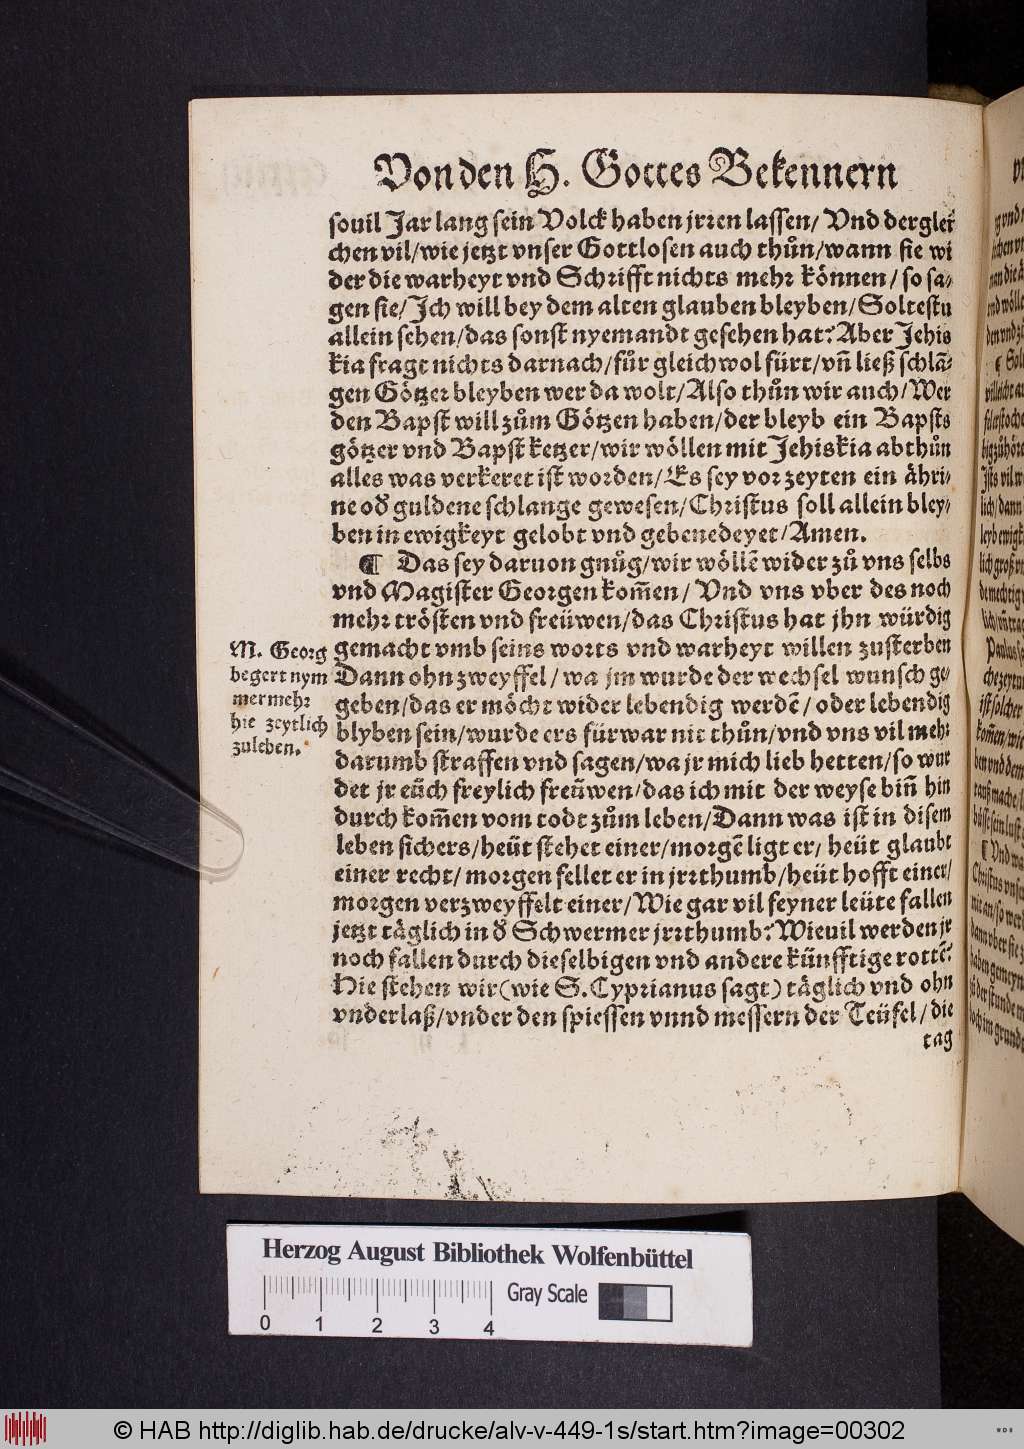 Von den H. Gottes Bekennern
souil Jar lang sein Volck haben jrren lassen/ Vnd derglei
chen vil/wie jetzt vnser Gottlosen auch thůn/wann sie wi
der die warheyt vnd Schrifft nichts mehr können/so sa-
gen sie/Jch will bey dem alten glauben bleyben/Soltestu
allein sehen/das sonst nyemandt gesehen hat? Aber Jehis
kia fragt nichts darnach/fůr gleichwol fürt/vñ ließ schlã-
gen Götzer bleyben wer da wolt/Also thůn wir auch/Wer
den Bapst will zům Götzen haben/der bleyb ein Bapsts
götzer vnd Bapst ketzer/wir wöllen mit Jehiskia abthůn
alles was verkeret ist worden/Es sey vor zeyten ein ähri-
ne oð guldene schlange gewesen/Christus soll allein bley-
ben in ewigkeyt gelobt vnd gebenedeyet/Amen.
¶ Das sey daruon gnůg/wir wöllẽ wider zů vns selbs
vnd Magister Georgen kom̃en/ Vnd vns vber des noch
mehr trösten vnd freüwen/das Christus hat jhn würdig
gemacht vmb seins worts vnd warheyt willen zusterben
Dann ohn zweyffel/wa jm wurde der wechsel wunsch ge-
geben/das er möcht wider lebendig werdẽ/oder lebendig
blyben sein/wurde ers fürwar nit thůn/vnd vns vil mehr
darumb straffen vnd sagen/wa jr mich lieb hetten/so wur
det jr eüch freylich freüwen/das ich mit der weyse biñ hin
durch kom̃en vom todt zům leben/Dann was ist in disem
leben sichers/heüt stehet einer/morgẽ ligt er/ heüt glaubt
einer recht/ morgen fellet er in jrrthumb/heüt hofft einer/
morgen verzweyffelt einer/Wie gar vil feyner leüte fallen
jetzt täglich in ð Schwermer jrrthumb? Wieuil werden jr
noch fallen durch dieselbigen vnd andere künfftige rottẽ?
Hie stehen wir (wie S. Cyprianus sagt) täglich vnd ohn
vnderlaß/vnder den spiessen vnnd messern der Teüfel/die
tag
M. Georg
begert nym
mermehr
hie zeytlich
zuleben.
Herzog August Bibliothek Wolfenbüttel
Gray Scale
0 1 2 3 4
© HAB http://diglib.hab.de/drucke/alv-v-449-1s/start.htm?image=00302